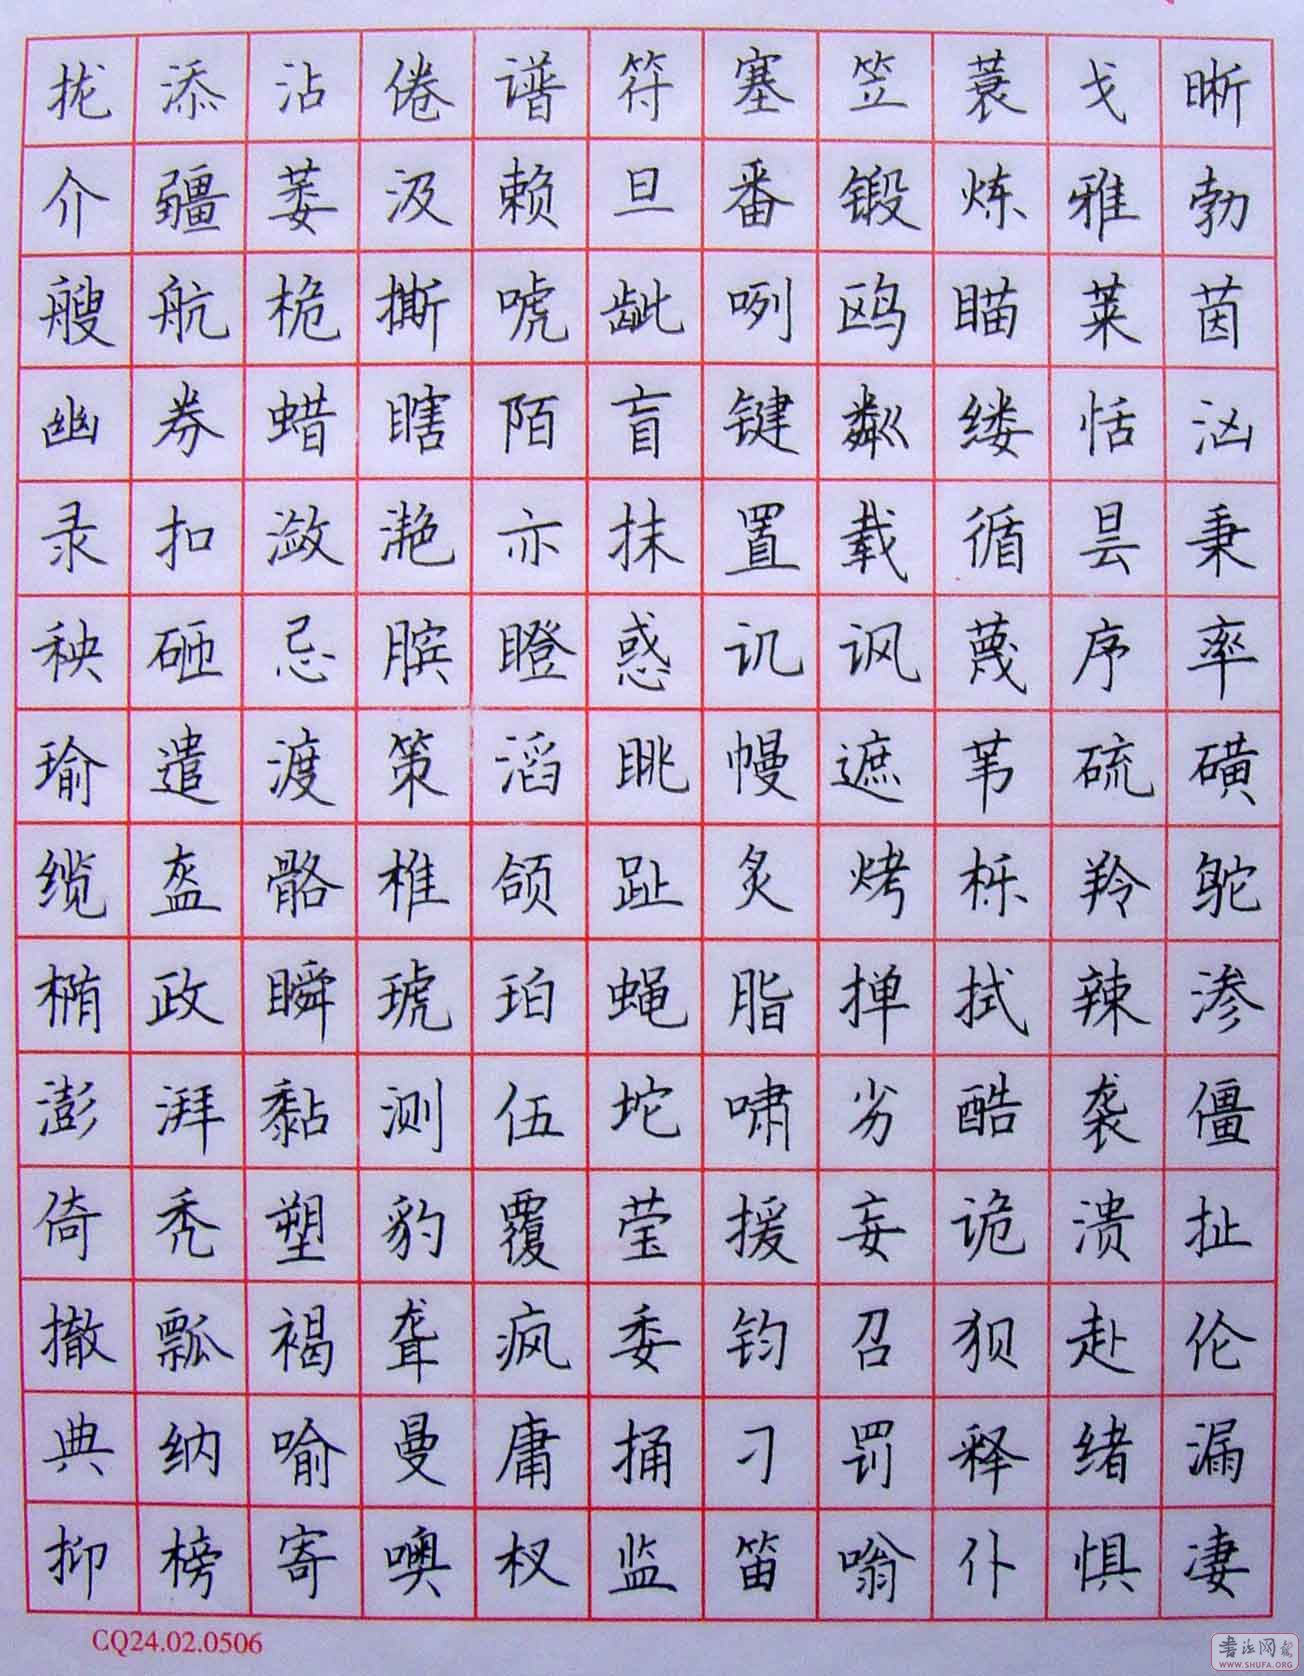 拢添沾倦谱符塞笠蓑戈晰
介疆萎汲赖旦番锻炼雅勃
艘航桅撕唬龇咧鸥瞄莱茵
幽券蜡瞎陌盲键粼缕恬汹
录扣潋滟亦抹置载循昙秉
秧砸忌膑瞪惑讥讽蔑序率
瑜遣渡策滔眺幔遮苇硫磺
缆盔骼椎颌趾炙烤栎羚鸵
椭政瞬琥珀蝇脂掸拭辣渗
澎湃黏测伍坨啸劣酷袭僵
倚秃塑豹覆莹援妄诡溃扯
撤瓢褐聋疯委钧召狈赴伦
典纳喻曼庸捅刁罚释绪漏
抑榜寄噢杈监笛嗡仆惧凄
CQ24.02.0506
书法网
WWW.SHUFA.ORG